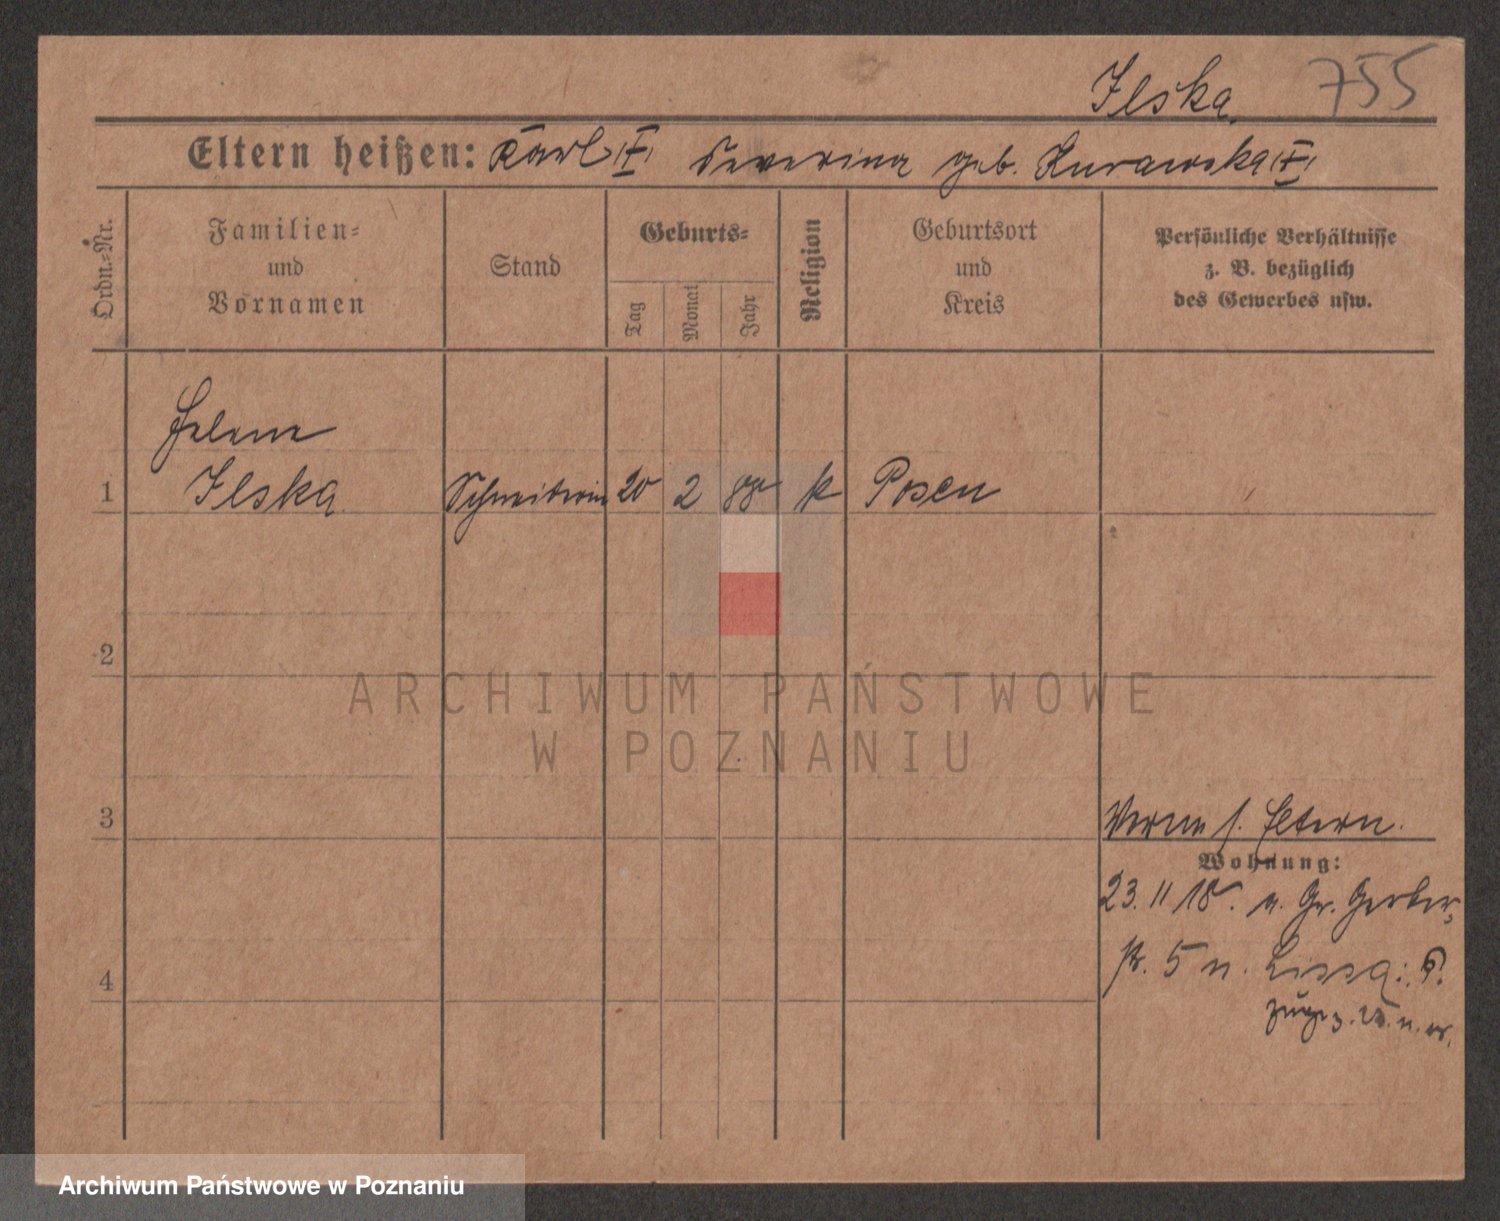 Ilska.
755
Eltern heißen: Karl Severina geb. Kurawska
Ordn.=Nr.
Familien=
und
Vornamen
Stand
Geburts=
Tag
Monat
Jahr
Religion
Geburtsort
und
Kreis
Persönliche Verhältnisse
z. B. bezüglich
des Gewerbes usw.
Helene
1 Ilska Schneiderin 20 2 88 k Posen
2
ARCHIWUM PAŃSTWOWE
W POZNANIU
3
Vorm s. Eltern.
Wohnung:
23. 11 18. a. Gr. Gerber=
str. 5 n. Lissa: P.
4
Archiwum Państwowe w Poznaniu